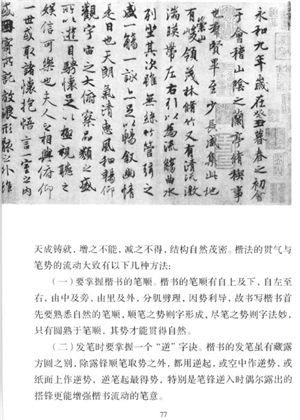 永和九年歲在癸丑暮春之初會
于會稽山陰之蘭亭脩稧事
也群賢畢至少長咸集此地
有崇山峻領茂林脩竹又有清流激
湍暎帶左右引以為流觴曲水
列坐其次雖無絲竹管弦之
盛一觴一詠亦足以暢敘幽情
是日也天朗氣清惠風和暢仰
觀宇宙之大俯察品類之盛
所以遊目騁懷足以極視聽之
娛信可樂也夫人之相與俯仰
一世或取諸懷抱悟言一室之內
或因寄所託放浪形骸之外雖
天成铸就，增之不能，减之不得，结构自然茂密。楷法的贯气与
笔势的流动大致有以下几种方法：
（一）要掌握楷书的笔顺。楷书的笔顺有自上及下，自左至
右，由中及旁，由里及外，分肌劈理，因势利导，故书写楷书首
先要熟悉自然的笔顺，顺笔之势则字形成，尽笔之势则字法妙，
只有圆熟于笔顺，其势才能贯得自然。
（二）发笔时要掌握一个“逆”字诀。楷书的发笔虽有藏露
方圆之别，除露锋顺笔取势之外，都用逆起，或空中作逆势，或
纸面上作逆势，逆笔起最得势，特别是笔锋逆入时偶尔露出的
搭锋更能增强楷书流动的笔意。
77